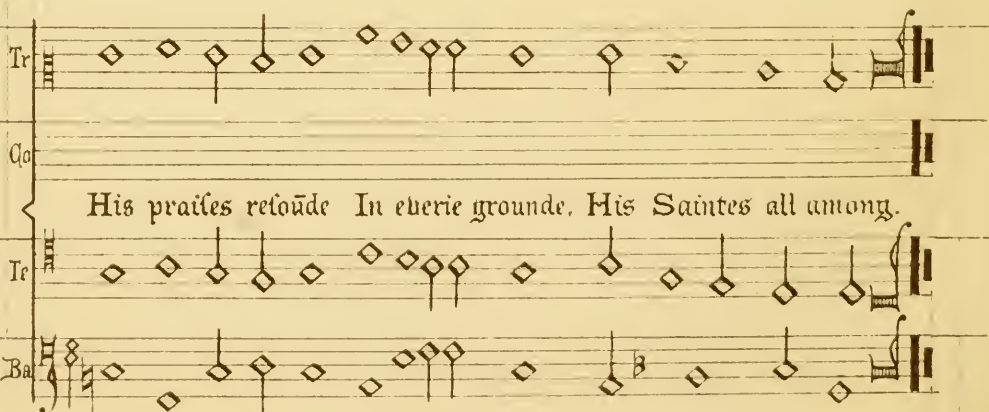 Tr
Co
His praiſes reſoūde In everie grounde. His Saintes all among.
Te
Ba